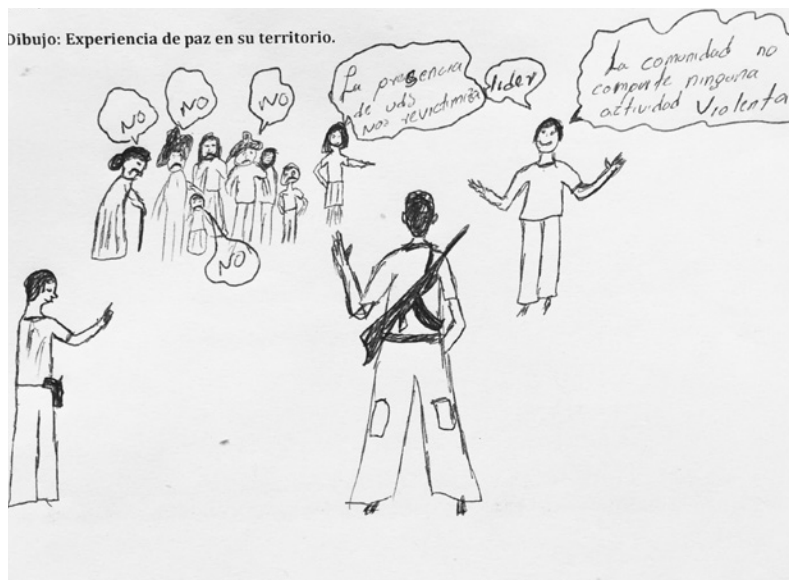 Dibujo: Experiencia de paz en su territorio.
NO
NO
NO
La presencia
de uds
nos revictimiza
lider
La comunidad no
comparte ninguna
actividad Violenta
NO